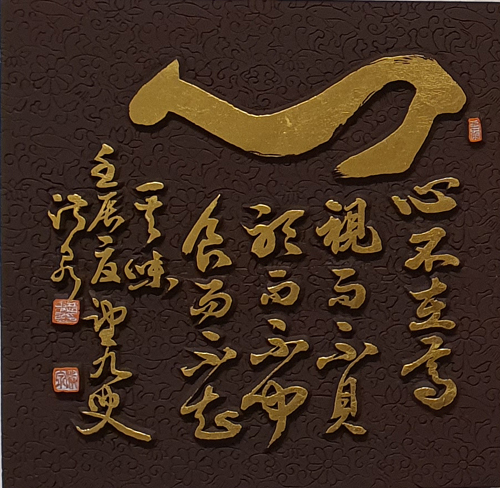 心
心不在焉
視而不見
聽而不聞
食而不知
其味
壬辰夏望九叟